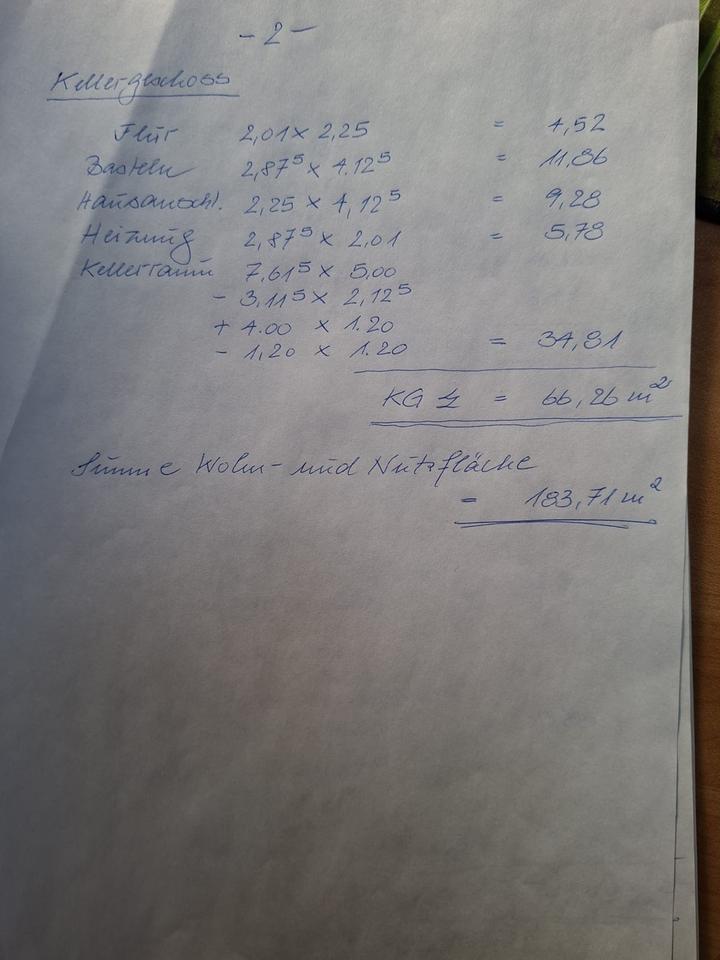 - 2 -
Kellergeschoss
Flur 2,01 x 2,25 = 4,52
Basteln 2,87⁵ x 4.12⁵ = 11,86
Hausanschl. 2,25 x 4,12⁵ = 9,28
Heizung 2,87⁵ x 2,01 = 5,78
Kellerraum 7,61⁵ x 5,00
- 3,11⁵ x 2,12⁵
+ 4.00 x 1.20
- 1,20 x 1.20 = 34,81
KG = 66,26 m²
Summe Wohn- und Nutzfläche
= 183,71 m²